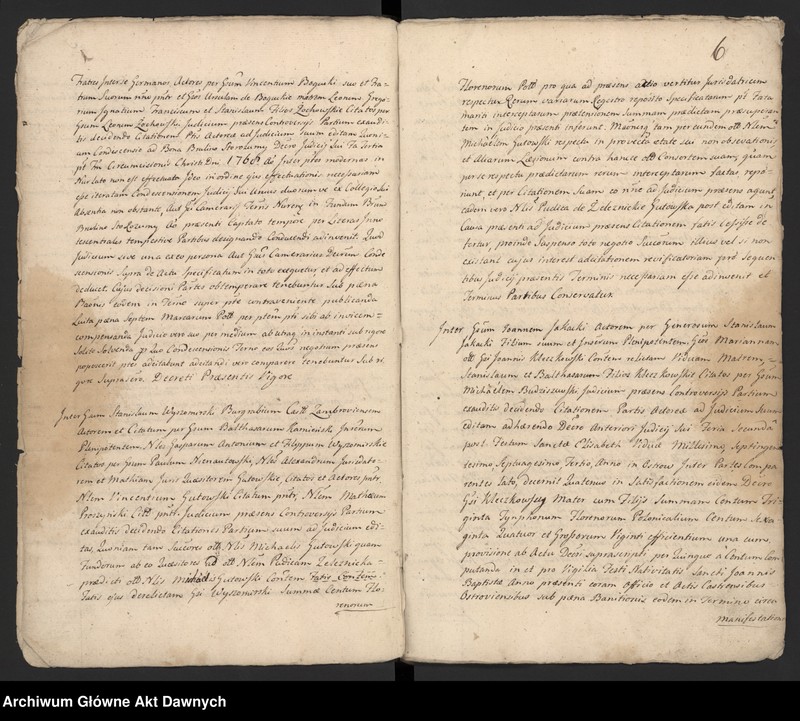 Fratres inter se Germanos Actores per Gsum Vincentium Boguski suo et Fra-
trum Suorum nne pntr et Gsos Ursulam de Boguckie matrem Leonem Grego-
rium Ignatium Franciscum et Stanislaum Filios Zochowskie Citatos per
Gsum Leonem Zochowski. Judicium præsens Controversijs Partium exaudi-
tis decidendo Citationem Ptis Actoreæ ad Judicium suum editam
um Condescensio ad Bona Bruline Skoroszmy Decro Judicij Sui Fa Tertia
pt Ftm Circumcisionis Christi Dni 1768 Ao Inter ptes modernas in
Nur lato non est effectuata Ideo in ordine ejus effectuationis necessariam
esse iteratam Condescensionem Judicij Sui Unius duorumve ex Collegio Sui
Absentia non obstante, Aut Gsi Camerarij Terris Nuren in Fundum Bnrum
Bruline Skoroszmy Ao præsenti Capitato tempore per Literas Inno
tescentiales tempestive Partibus designando Conducendi adinvenit. Quod
Judicium sive una ex eo persona Aut Gsus Camerarius Decrum Conde
scensionis Supra de Actu Specificatum in toto exequetur et ad effectum
deducet. Cujus decisioni Partes obtemperare tenebuntur Sub pæna
Banni eodem in Termo super pte contraveniente publicanda
Luita pæna Septem Marcarum Poll per ptem pti sibi ab invicem
compensanda Judicio vero suo per medium ab utraq in instanti sub rigore
Solito Solvenda pro quo Condescensionis Termo eos quos negotium præsens
poposcerit ptes adcitabunt adcitandi vero comparere tenebuntur Sub ri-
gore Suprascro Decreti Præsentis Vigore
Inter Gsum Stanislaum Wyszomirski Burgrabium Castr Zambroviensem
Actorem et Citatum per Gsum Balthasarum Kamieński Juratum
Plenipotentem, Nlos Gasparum Antonium et Filippum Wyszomirskie
Citatos per Gsum Paulum Nienautowski, Nlos Alexandrum Jurisdato-
rem et Mathiam Juris Quæsitorem Gutowskie, Citatos et Actores pntr,
Nlem Vincentium Gutowski Citatum pntr, Nlem Mathæum
Proszyński Cittm pntr. Judicium præsens Controversijs Partium
exauditis decidendo Citationes Partium suum ad Judicium edi-
tas, Quoniam tam Sucores olim Nlis Michaelis Gutowski quam
Fundorum ab eo Quæsitores ad olim Nlem Pudicam Zeleznicka
prædicti olim Nlis Michael Gutowski Contem Fatis Contem
Fatis ejus derelictam Gsi Wyszomirski Summæ Centum Flo-
renorum
6
Florenorum Poll pro qua ad præsens actio vertitur Jurisdatricem
respectu Rerum variarum Registro reposito Specificatarum pt Fata
mariti interceptarum prætensionem Summam prædictam præsuperan
tem in Judicio præsenti inferunt. Maximeq tam per eundem olim Nlem
Michælem Gutowski respectu in provecta ætate sui non observationis
et aliarum Læsionum contra hancce olim Consortem suam, quam
per se respectu prædictarum rerum interceptarum factas repo-
niunt, et per Citationem Suam eo nne ad Judicium præsens agunt
eadem vero Nlis Pudica de Zeleznickie Gutowska post editam in
Causa præsenti ad Judicium præsens Citationem fatis cessisse de
fertur, proinde Suspenso toto negotio Sucorum illius vel si non
existant cujus interest adcitationem revificatoriam pro Sequen
tibus Judicij præsentis Terminis necessariam esse adinvenit et
Terminus Partibus Conservatur
Inter Gsum Joannem Jakacki Actorem per Generosum Stanislaum
Jakacki Filium suum et Juratum Plenipotentem, Gsos Mariannam
olim Gsi Joannis Kleczkowski Contem relictam Viduam Matrem,
Stanislaum et Balthasarum Filios Kleczkowskie Citatos per Gsum
Michælem Budziszewski Judicium præsens Controversijs Partium
exauditis decidendo Citationem Partis Actoreæ ad Judicium suum
editam adhærendo Decro Anteriori Judicij Sui Feria Secunda
post Festum Sanctæ Elisabeth Viduæ Millesimo Septingen
tesimo Septuagesimo Tertio Anno in Ostrow Inter Partes Compa
rentes lato, decernit Quatenus in Satisfactionem ejusdem Decreti
Gsi Kleczkowscy Mater cum Filijs Summam Centum Tri-
ginta Tynphonum Florenorum Polonicalium Centum Sexa
ginta Quatuor et Grossorum Viginti efficientium una cum
provisione ab Actu Decri suprascripti per Quinque a Centum Com
putanda in et pro Vigilia Festi Nativitatis Sancti Joannis
Baptistæ Anno præsenti coram Officio et Actis Castrensibus
Ostroviensibus sub pæna Banitionis eodem in Termino circa
manifestation
Archiwum Główne Akt Dawnych